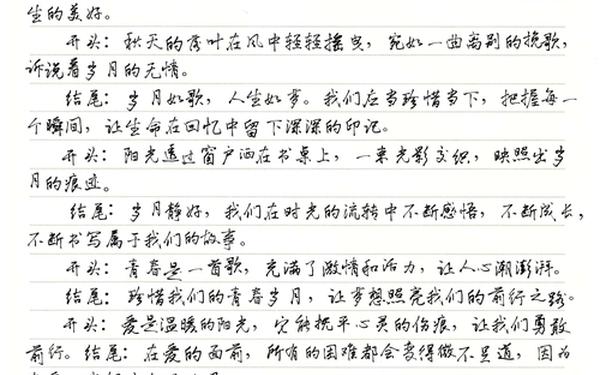 生的美好。
开头：秋天的落叶在风中轻轻摇曳，宛如一曲离别的挽歌，
诉说着岁月的无情。
结尾：岁月如歌，人生如梦。我们应当珍惜当下，把握每一
个瞬间，让生命在回忆中留下深深的印记。
开头：阳光透过窗户洒在书桌上，一束光影交织，映照出岁
月的痕迹。
结尾：岁月静好，我们在时光的流转中不断感悟，不断成长，
不断书写属于我们的故事。
开头：青春是一首歌，充满了激情和活力，让人心潮澎湃。
结尾：珍惜我们的青春岁月，让梦想照亮我们的前行之路。
开头：爱是温暖的阳光，它能抚平心灵的伤痕，让我们勇敢
前行。结尾：在爱的面前，所有的困难都会变得微不足道，因为